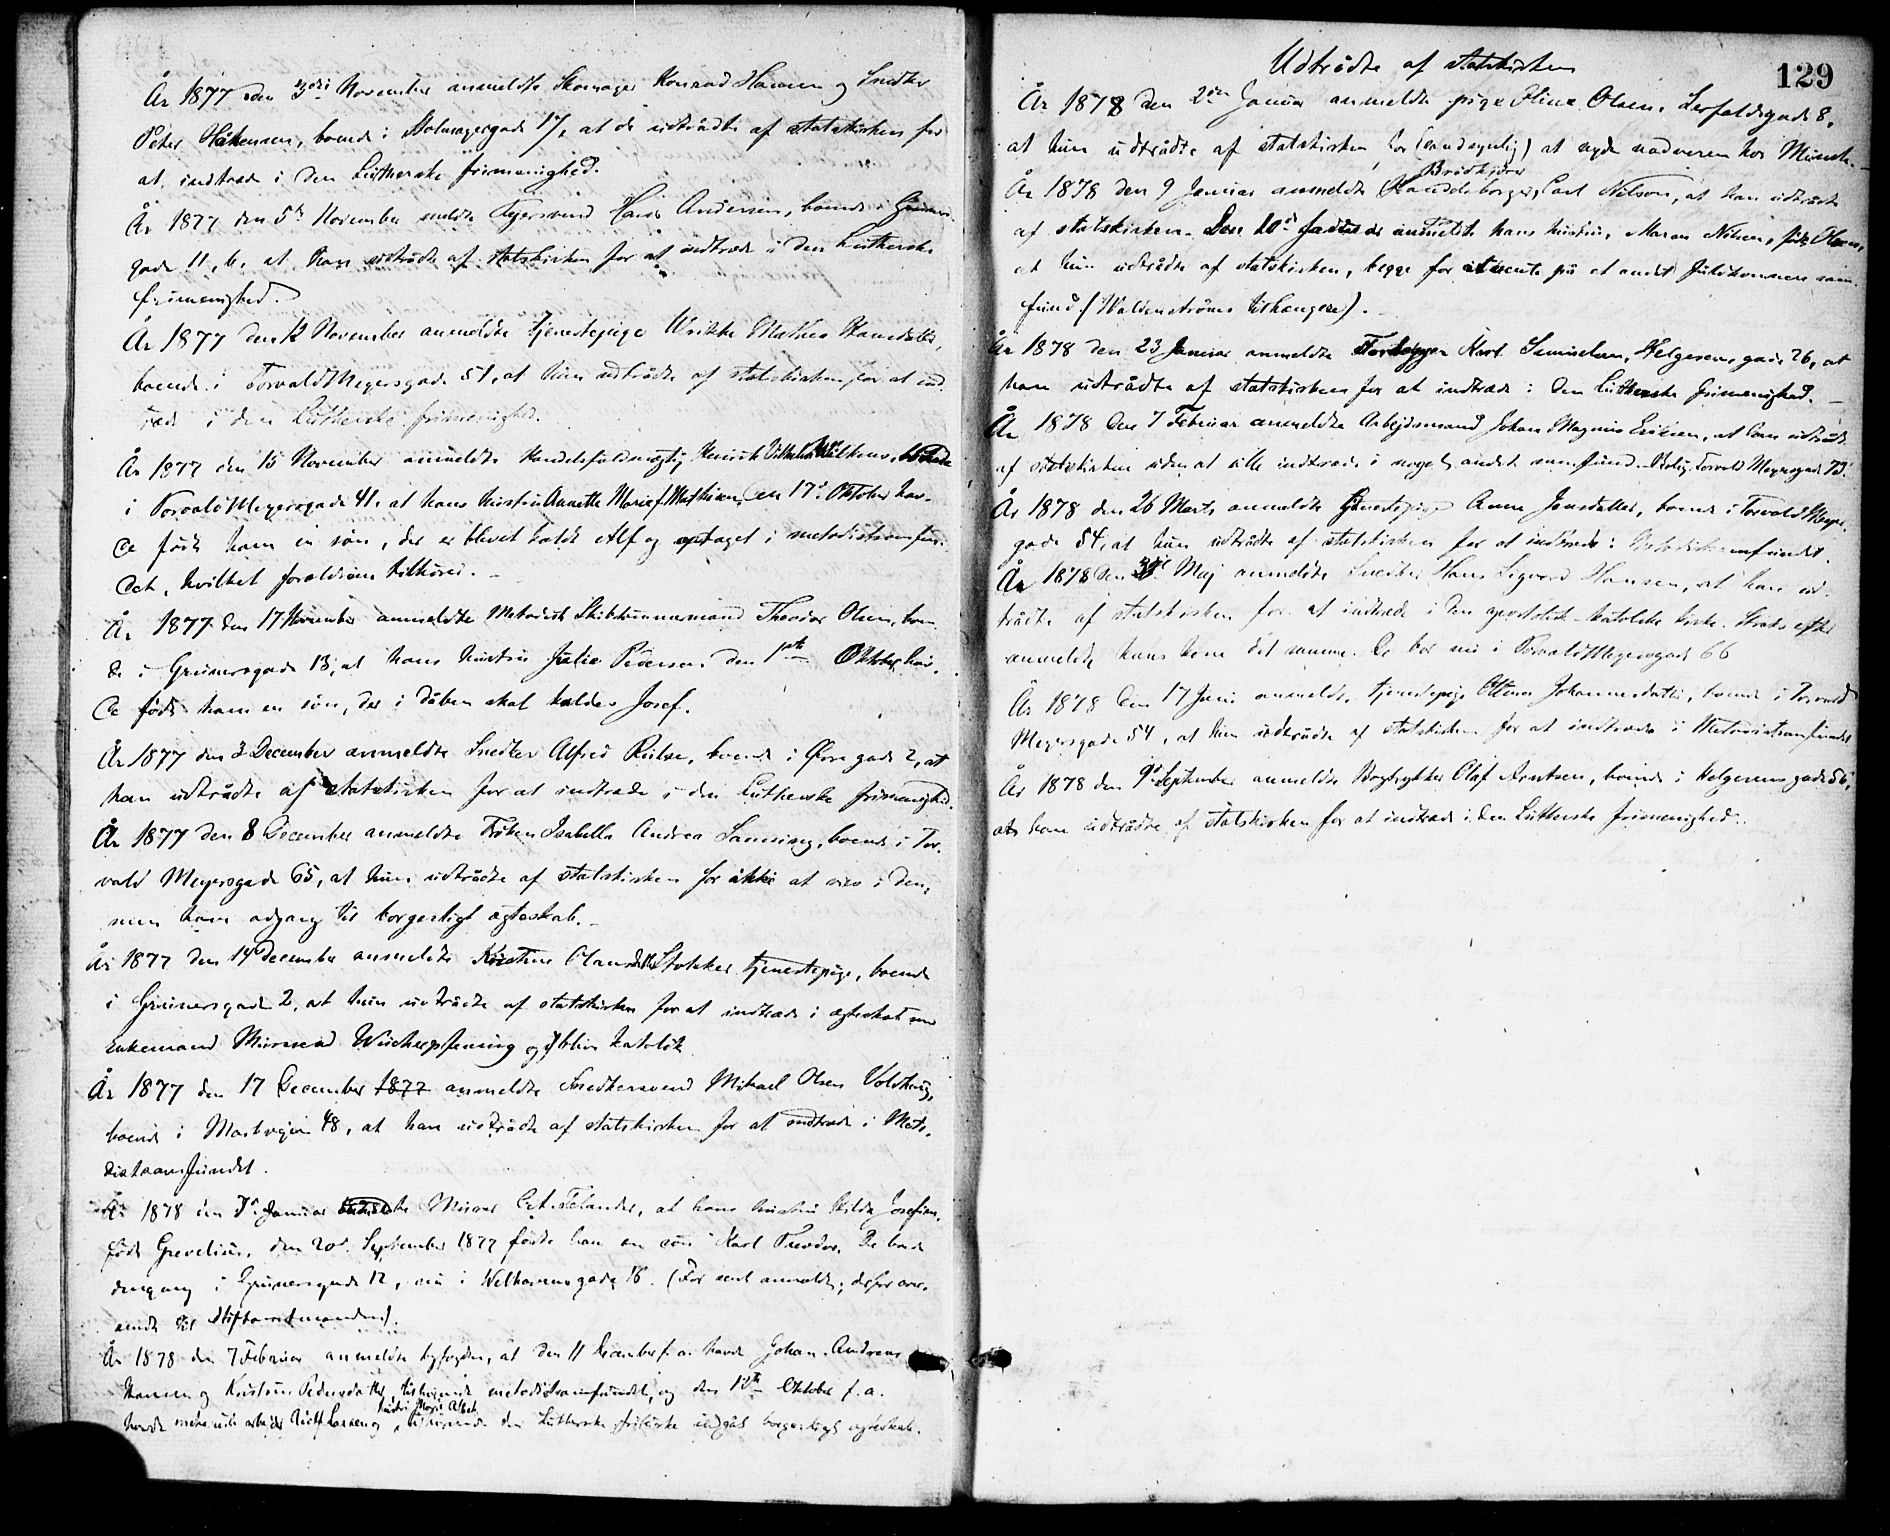 År 1877 den 3die November anmeldte Skomager Konrad Hansen og Snedker
Peter Håkensen, boende i Stolmagergade 17, at de udtrådte af statskirken for
at indtræde i den Lutherske frimenighed.
År 1877 den 5te November meldte Andersen, boende i Grüners-
gade 11, b. at han udtrådte af statskirken for at indtræde i den Lutherske
frimenighed.
År 1877 den 12 November anmeldte tjenestepige Mathea Hansdatter,
boende i Torvald Meyersgade 51, at hun udtrådte af statskirken for at ind-
træde i den Lutherske frimenighed.
År 1877 den 15 November anmeldte Handelsfuldmægtig Henrik Vilhelm boende
i Torvald Meyersgade 41, at hans hustru Annette Marie f. Mathisen den 17de Oktober hav-
de født ham en søn, der er blevet kaldt Alf og optaget i metodistsamfun-
det, hvilket forældrene tilhører.
År 1877 den 17 November anmeldte Metodist Skibstømmermand Theodor Olsen, boen-
de i Grünersgade 13, at hans hustru Julie Pedersen den 1ste Oktober hav-
de født ham en søn, der i dåben skal kaldes Josef.
År 1877 den 3 December anmeldte Snedker Alfred boende i gade 2, at
han udtrådte af statskirken for at indtræde i den Lutherske frimenighed.
År 1877 den 8 December anmeldte Frøken Isabella Andrea Lansing, boende i Tor-
vald Meyersgade 65, at hun udtrådte af statskirken for ikke at vies i den,
men have adgang til borgerligt ægteskab.
År 1877 den 14 December anmeldte Kristine Olausdatter Stokker tjenestepige, boende
i Grünersgade 2, at hun udtrådte af statskirken for at indtræde i ægteskab med
Enkemand Murmand og blive katolik
År 1877 den 17 December 1877 anmeldte Snedkersvend Mikael Olsen
boende i Markvejen 48, at han udtrådte af statskirken for at indtræde i Meto-
distsamfundet.
År 1878 den 7de Januar Murer Telander, at hans hustru Hilda Josefine,
født Grevelius, den 20de September 1877 fødte ham en søn Karl Theodor. De boede
dengang i Grünersgade 12, nu i Welhavensgade 16. (For sent anmeldt; derfor over-
sendt til stiftamtmanden).
År 1878 den 7 Februar anmeldte byfogden, at den 11 December f. a. havde Johan Andreas
Hansen og Kristine Pedersdatter, tilhørende metodistsamfundet, og den 12te Oktober f. a.
havde arbejder Larsen og hustru Marie tilhørende den Lutherske frikirke indgåt borgerligt ægteskab.
Udtrådte af statskirken
129
År 1878 den 2den Januar anmeldte pige Oline Olsen, Lerfaldsgade 8,
at hun udtrådte af statskirken for (sandsynlig) at nyde nadveren hos
År 1878 den 9 Januar anmeldte Brødkjører Carl Nilson, at han udtrådte
af statskirken. Den 10de anmeldte hans hustru, Maren Nilsen, født Olsen,
at hun udtrådte af statskirken, begge for at vente på et andet sam-
fund (Waldenstrøms tilhængere).
År 1878 den 23 Januar anmeldte Karl Samuelsen, Helgesensgade 26, at
han udtrådte af statskirken for at indtræde i den Lutherske frimenighed.
År 1878 den 7 Februar anmeldte Arbejdsmand Johan Magnus Eriksen, at han udtrådte
af statskirken uden at ville indtræde i noget andet samfund. Bolig: Torvald Meyersgade 73.
År 1878 den 26 Marts anmeldte tjenestepige Anne Jensdatter, boende i Torvald Meyers-
gade 54, at hun udtrådte af statskirken for at indtræde i Metodistsamfundet.
År 1878 den Maj anmeldte Snedker Hans Sigvard Hansen, at han ud-
trådte af statskirken for at indtræde i den apostolisk-katolske kirke. Straks efter
anmeldte hans kone det samme. De bor nu i Torvald Meyersgade 66
År 1878 den 17 Juni anmeldte tjenestepige Ottine Johannesdatter, boende i Torvald
Meyersgade 54, at hun udtrådte af statskirken for at indtræde i Metodistsamfundet
År 1878 den 9de September anmeldte Bogtrykker Olaf Arntsen, boende i Helgesensgade 56,
at han udtrådte af statskirken for at indtræde i den Lutherske frimenighed.